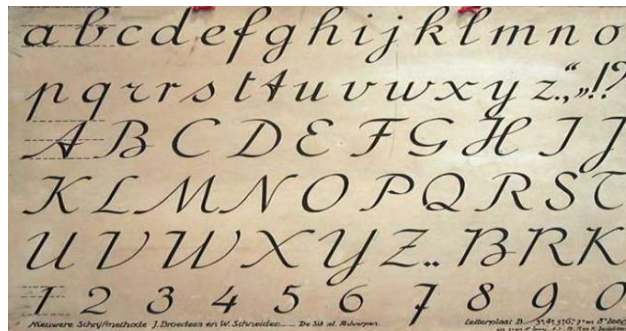 a b c d e f g h i j k l m n o
p q r r s t t u v w x y z . , “ „ ! ?
A B C D E F G H I J
K L M N O P Q R S T
U V W X Y Z .. B R K
1 2 3 4 5 6 7 8 9 0
Nieuwere Schrijfmethode J. Broeders en W. Schneider De Sikkel Antwerpen
Letterplaat B